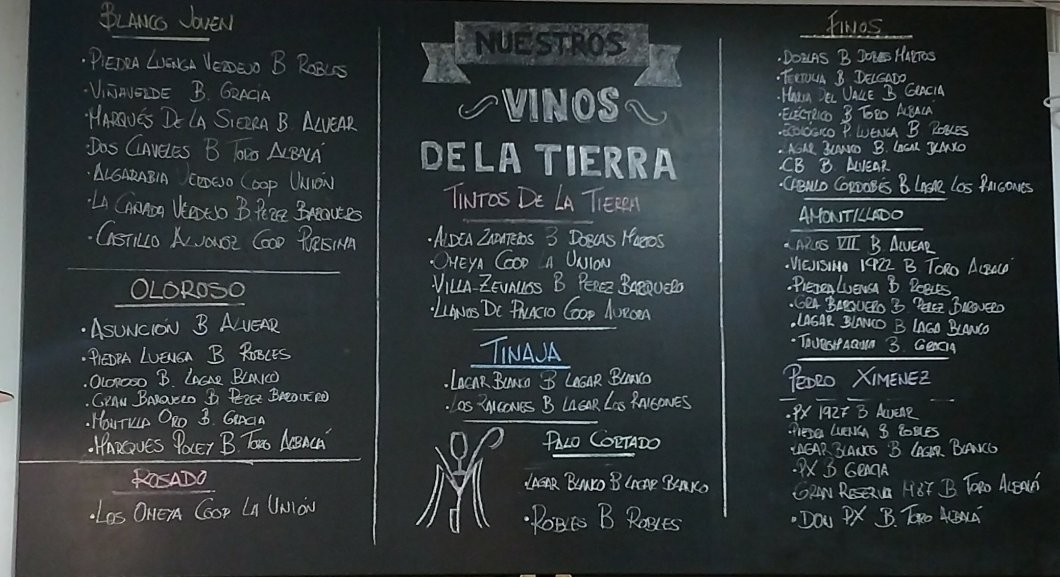 BLANCO JOVEN
·PIEDRA LUENGA VERDEJO B ROBLES
·VIÑAVERDE B. GRACIA
·MARQUÉS DE LA SIERRA B. ALVEAR
·DOS CLAVELES B TORO ALBALÁ
·ALGARABIA VERDEJO COOP UNIÓN
·LA CAÑADA VERDEJO B. PEREZ BARQUERO
·CASTILLO ALJONOZ COOP PURISIMA
OLOROSO
·ASUNCIÓN B ALVEAR
·PIEDRA LUENGA B ROBLES
·OLOROSO B. LAGAR BLANCO
·GRAN BARQUERO B PEREZ BARQUERO
·MONTILLA ORO B. GRACIA
·MARQUES POLEY B. TORO ALBALÁ
ROSADO
·LOS OMEYA COOP LA UNIÓN
NUESTROS
VINOS
DE LA TIERRA
TINTOS DE LA TIERRA
·ALDEA ZAPATEROS B DOBLAS MARTOS
·OMEYA COOP LA UNION
·VILLA-ZEVALLOS B PEREZ BARQUERO
·LLANOS DE PALACIO COOP AURORA
TINAJA
·LAGAR BLANCO B LAGAR BLANCO
·LOS RAIGONES B LAGAR LOS RAIGONES
PALO CORTADO
·LAGAR BLANCO B LAGAR BLANCO
·ROBLES B ROBLES
FINOS
·DOBLAS B DOBLAS MARTOS
·TERTULIA B DELGADO
·MARIA DEL VALLE B GRACIA
·ELÉCTRICO B TORO ALBALÁ
·ECOLÓGICO P. LUENGA B ROBLES
·LAGAR BLANCO B. LAGAR BLANCO
·CB B. ALVEAR
·CABALLO CORDOBES B LAGAR LOS RAIGONES
AMONTILLADO
·CARLOS VII B ALVEAR
·VIEJISIMO 1922 B TORO ALBALÁ
·PIEDRA LUENGA B ROBLES
·GRA BARQUERO B PEREZ BARQUERO
·LAGAR BLANCO B LAGA BLANCO
B. GRACIA
PEDRO XIMENEZ
·PX 1927 B ALVEAR
·PIEDRA LUENGA B ROBLES
·LAGAR BLANCO B LAGAR BLANCO
·PX B GRACIA
GRAN RESERVA 1987 B. TORO ALBALÁ
·DON PX B. TORO ALBALÁ